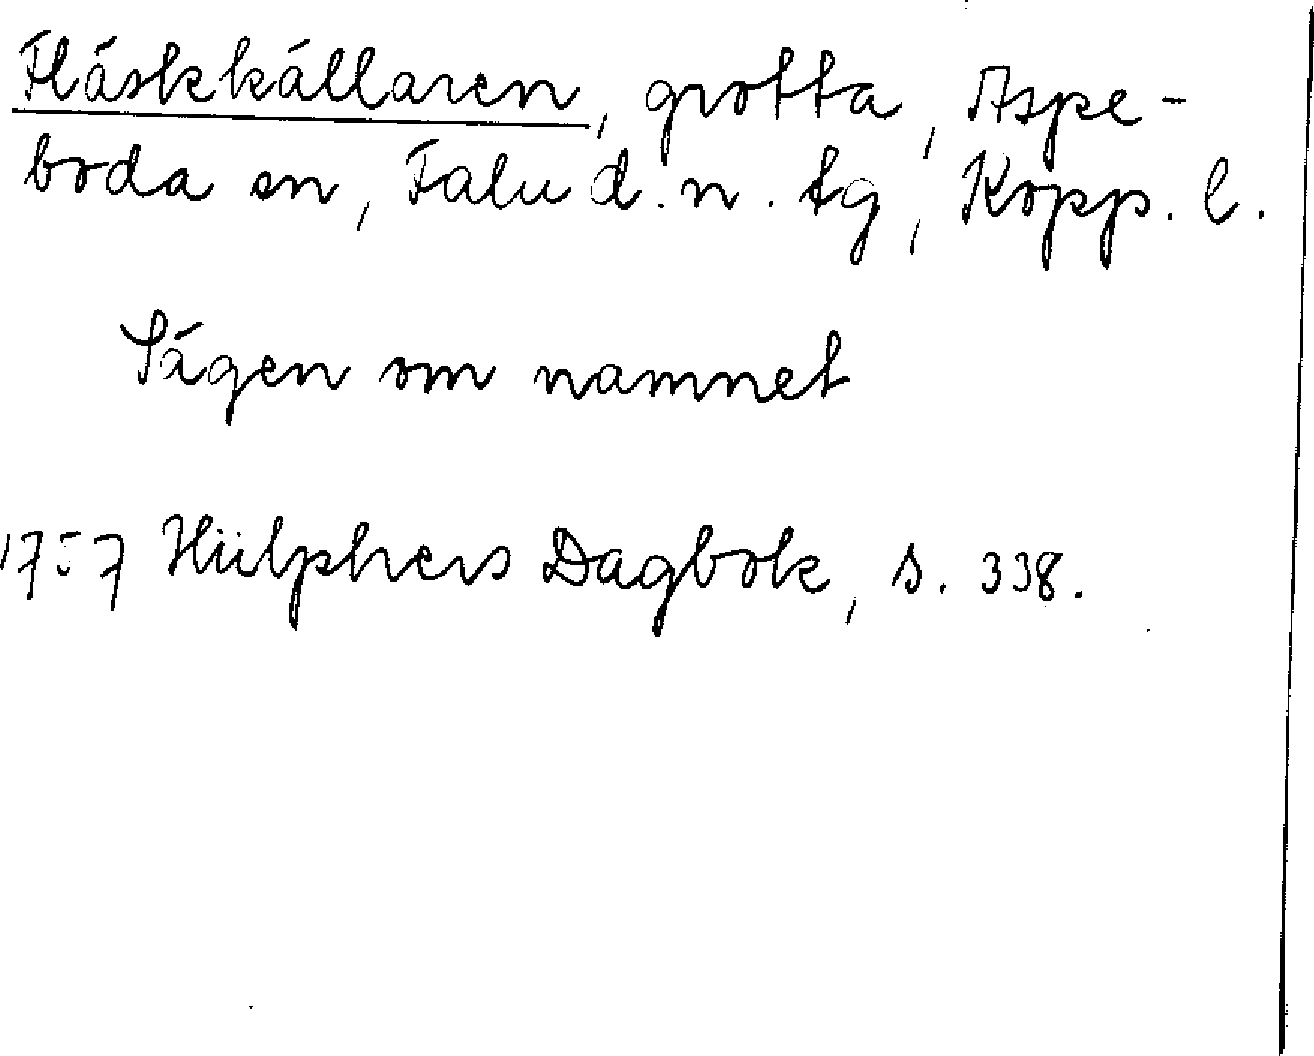 Fläskkällaren, grotta, Aspe-
boda sn, Falu d. n. tg, Kopp. l.
Sägen om namnet
1757 Hülphers Dagbok, s. 338.